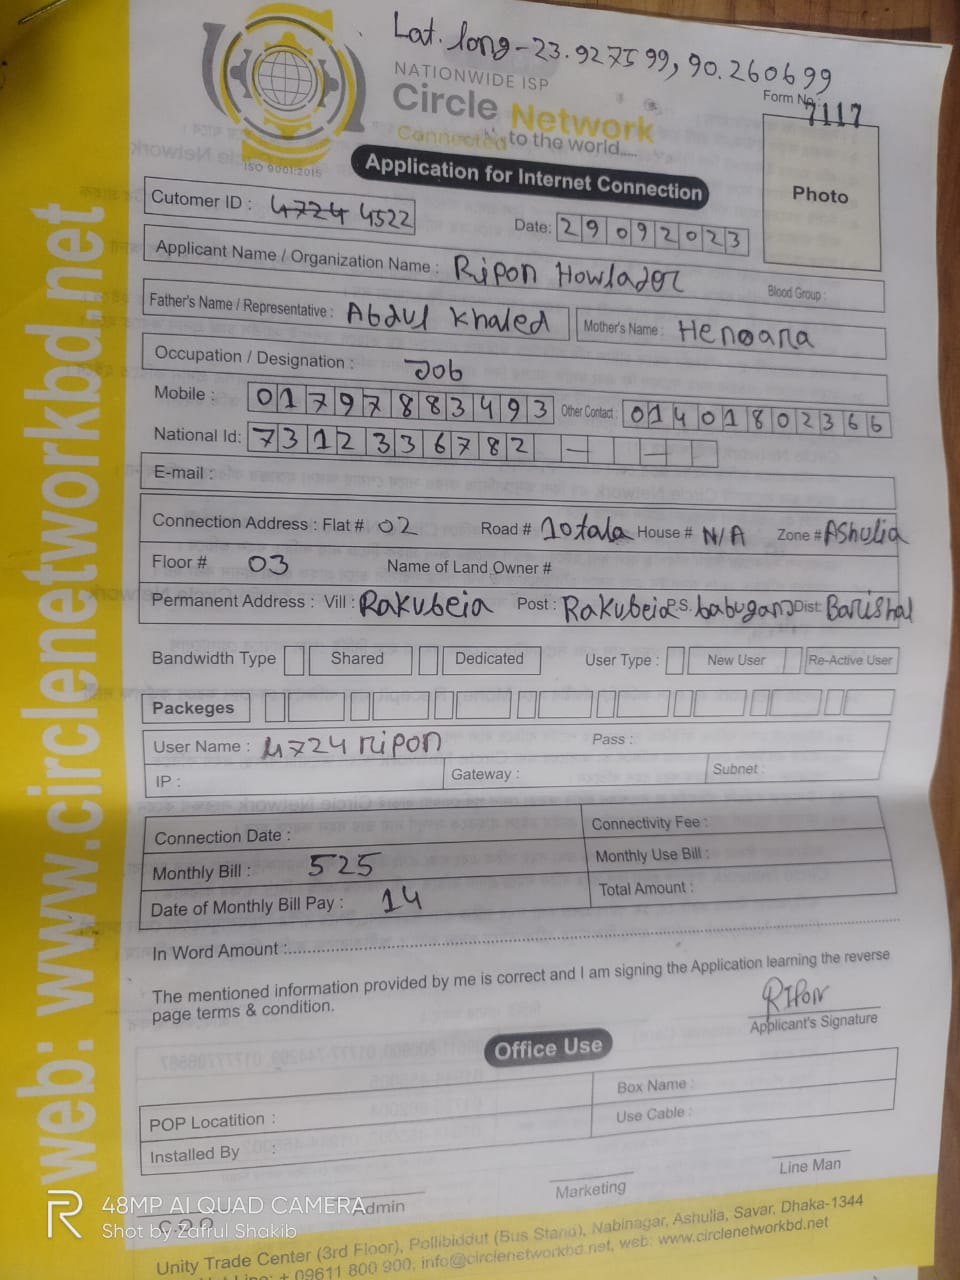 Lat. long - 23.927599, 90.260699
NATIONWIDE ISP
Circle Network
Connected to the world.....
ISO 9001:2015
Form No.: 7117
Photo
Application for Internet Connection
Cutomer ID : 4724 4522
Date: 29092023
Applicant Name / Organization Name : Ripon Howlader
Blood Group :
Father's Name / Representative : Abdul Khaled Mother's Name : Henoara
Occupation / Designation : Job
Mobile : 01797883493 Other Contact : 01401802366
National Id: 7312336782 — —
E-mail :
Connection Address : Flat # 02 Road # 10tala House # N/A Zone # AShulia
Floor # 03 Name of Land Owner #
Permanent Address : Vill : Rakubeia Post : Rakubeia P.S. babuganj Dist: Barishal
Bandwidth Type Shared Dedicated User Type : New User Re-Active User
Packeges
User Name : 4724 ripon Pass :
IP : Gateway : Subnet :
Connection Date : Connectivity Fee :
Monthly Bill : 525 Monthly Use Bill :
Date of Monthly Bill Pay : 14 Total Amount :
In Word Amount :
The mentioned information provided by me is correct and I am signing the Application learning the reverse
page terms & condition.
RIPON
Applicant's Signature
Office Use
POP Locatition : Box Name :
Installed By : Use Cable :
Admin Marketing Line Man
Unity Trade Center (3rd Floor), Pollibiddut (Bus Stand), Nabinagar, Ashulia, Savar, Dhaka-1344
+ 09611 800 900, info@circlenetworkbd.net, web: www.circlenetworkbd.net
web: www.circlenetworkbd.net
48MP AI QUAD CAMERA
Shot by Zafrul Shakib